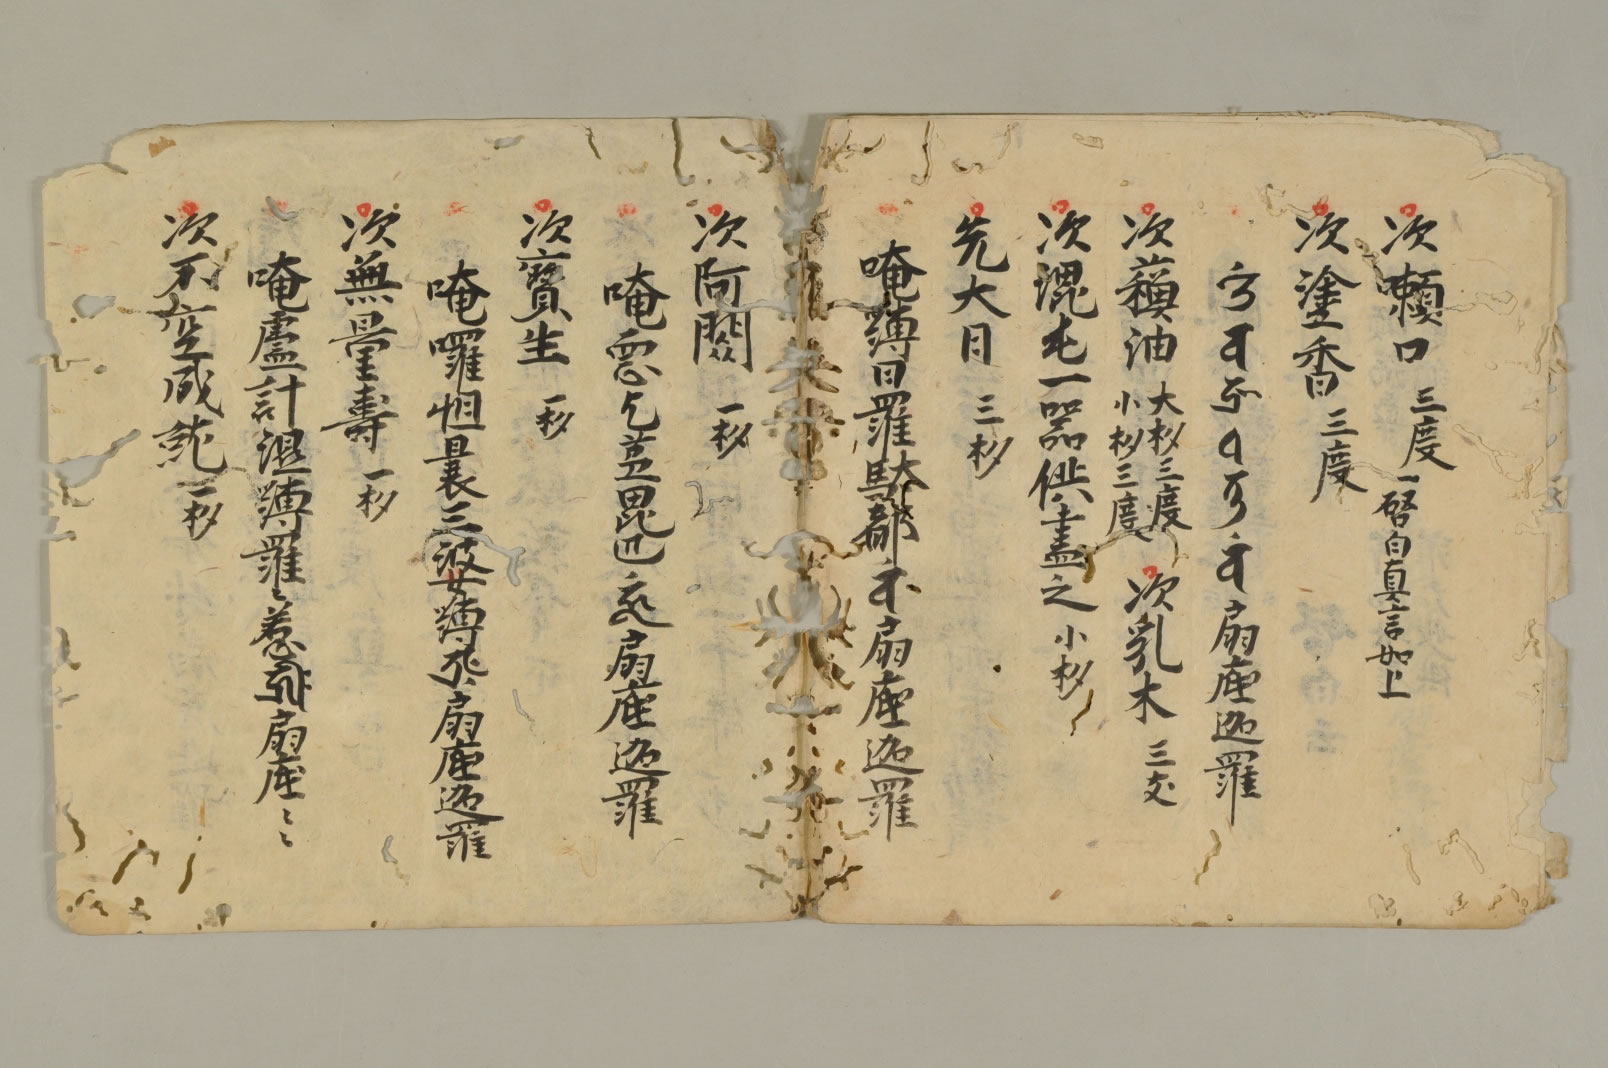 次嗽口 三度 一啓白真言如上
次塗香 三度
扇底迦羅
次蘓油 大杓三度 小杓三度 次乳木 三支
次混屯一器供盡之 小杓
先大日 三杓
唵縛日羅駄都 扇底迦羅
次阿閦 一杓
唵惡乞蒭毘 扇底迦羅
次寳生 一杓
唵囉怛曩三婆縛 扇底迦羅
次無量壽 一杓
唵盧計湿縛羅 羅惹 扇底〻〻
次不空成就 一杓